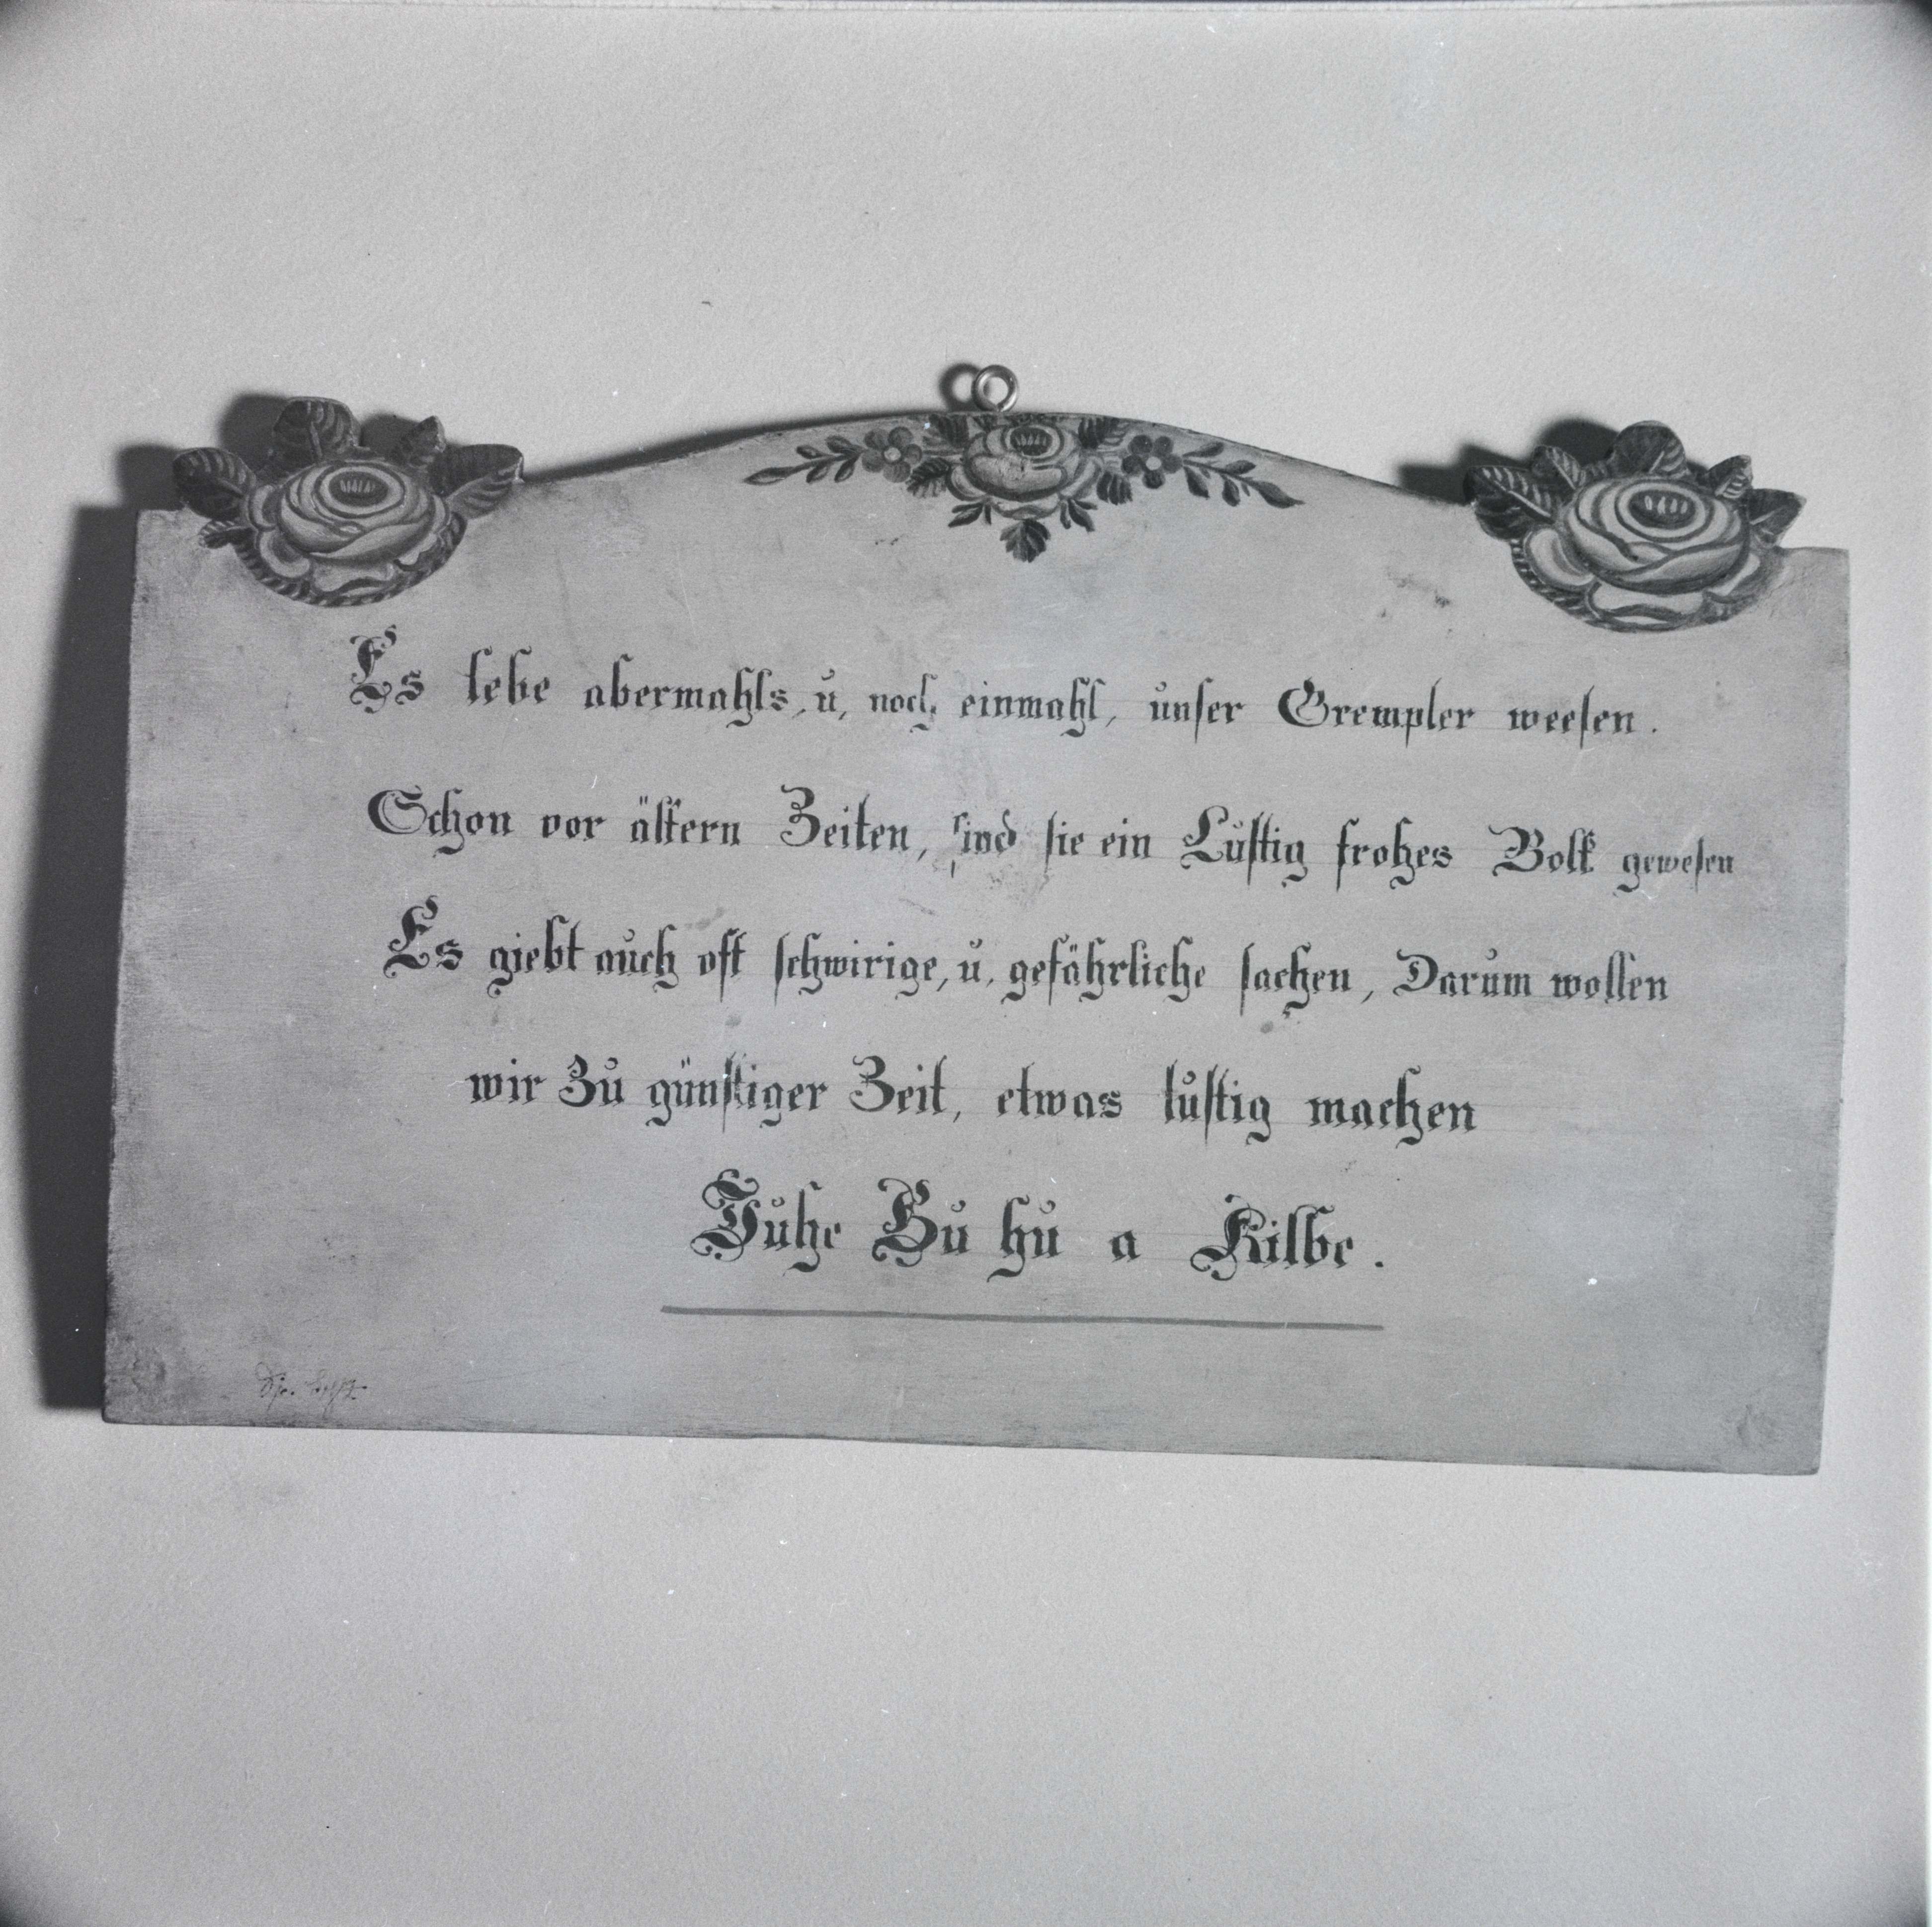 Es lebe abermahls, u, noch einmahl, unser Grempler weesen.
Schon vor ältern Zeiten, sind sie ein Lustig frohes Volk gewesen
Es giebt auch oft schwirige, u, gefährliche sachen, Darum wollen
wir Zu günstiger Zeit, etwas lustig machen
Juhe Hu hu a Kilbe.